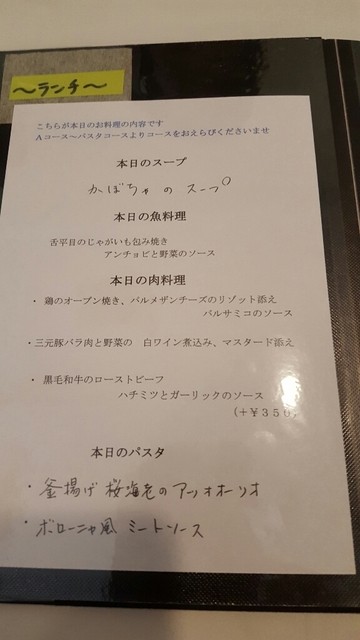 ～ランチ～
こちらが本日のお料理の内容です
Aコース～パスタコースよりコースをおえらびくださいませ
本日のスープ
かぼちゃのスープ
本日の魚料理
舌平目のじゃがいも包み焼き
アンチョビと野菜のソース
本日の肉料理
・鶏のオーブン焼き、パルメザンチーズのリゾット添え
バルサミコのソース
・三元豚バラ肉と野菜の 白ワイン煮込み、マスタード添え
・黒毛和牛のローストビーフ
ハチミツとガーリックのソース
(+¥350)
本日のパスタ
・釜揚げ桜海老のアーリオオーリオ
・ボローニャ風 ミートソース